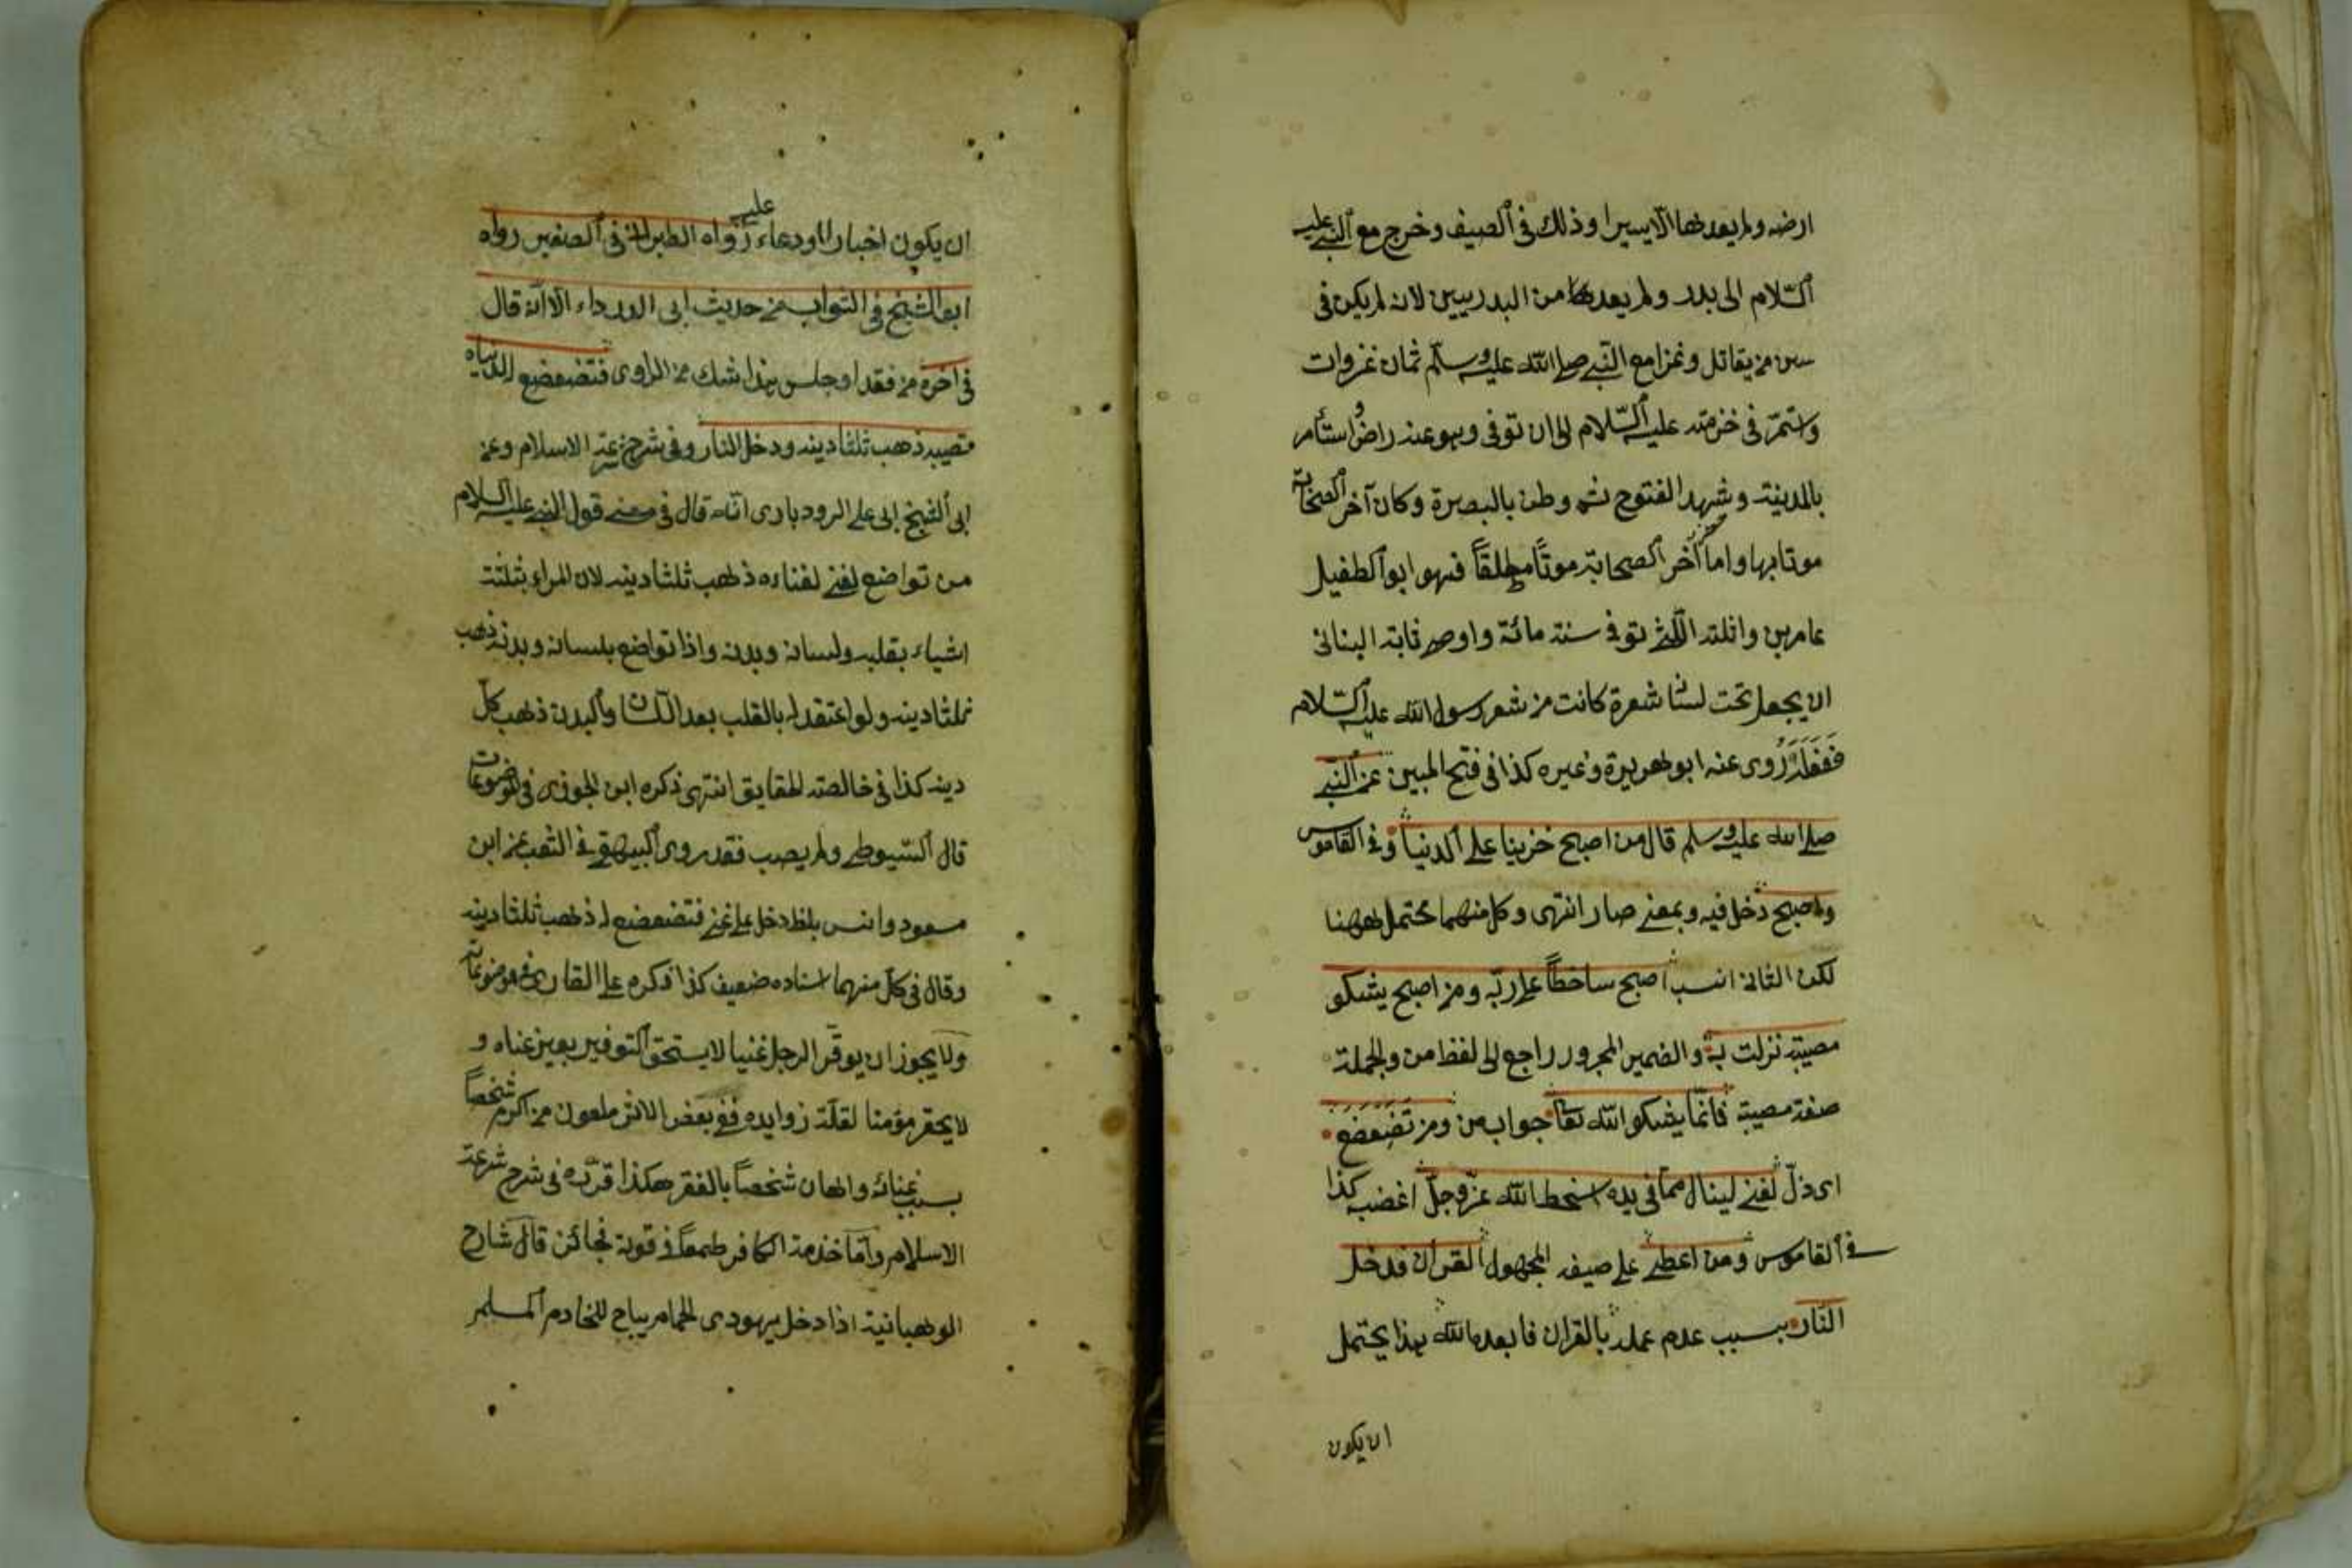 ارضه ولم يعد لها الا يسيرا وذلك في الصيف وخرج مع النبي عليه
السّلام الى بدر ولم يعدها من البدريين لانه لم يكن في
سن من يقاتل وغزا مع النبي صلى الله عليه وسلم ثمان غزوات
واستمر في خدمته عليه السّلام الى ان توفى وهو عنه راض واستأمر
بالمدينة وشهد الفتوح ثم وطن بالبصرة وكان آخر الصحابة
موتا بها واما آخر الصحابة موتاً مطلقاً فهو ابو الطفيل
عامر بن واثلة الليثي توفي سنة مائة واوصى ثابة البناني
ان يجعل تحت لسانه شعرة كانت من شعر رسول الله عليه السّلام
ففعل روى عنه ابو هريرة وغيره كذا في فتح المبين عن النّبي
صلى الله عليه وسلم قال من اصبح حزينا على الدنيا وفي القاموس
واصبح دخل فيه وبمعنى صار انتهى وكل منهما محتمل ههنا
لكن الثاني انسب اصبح ساخطاً على ربّه ومن اصبح يشكو
مصيبة نزلت به والضمير المجرور راجع الى لفظ من والجملة
صفة مصيبة فانّما يشكو الله تعالى جواب من ومن تَضَعْضَعَ
اى ذلّ لغني لينال مما في يده اسخط الله عزّ وجلّ اغضبه كذا
في القاموس ومن اعطى على صيغه المجهول القرآن فدخل
النّار بسبب عدم عمله بالقران فابعده الله هذا يحتمل
ان يكون
ان يكون اخبارا او دعاء عليه رواه الطبراني في الصغير رواه
ابو الشيخ في الثواب من حديث ابى الدرداء الا انه قال
في آخره من فقد او جلس هذا شك من الراوى فتضعضع لدنياه
تصيبه ذهب ثلثا دينه ودخل النار وفي شرح شرعة الاسلام وعن
ابى الشيخ ابى على الرودبارى انّه قال في معنى قول النبي عليه السلام
من تواضع لغني لغناءه ذهب ثلثا دينه لان المراء بثلثة
اشياء بقلبه ولسانه وبدنه واذا تواضع بلسانه وبدنه ذهب
ثلثا دينه ولو اعتقد له بالقلب بعد اللسان والبدن ذهب كلّ
دينه كذا في خالصة الحقايق انتهى ذكره ابن الجوزى في الموضوعات
قال السّيوطي ولم يصب فقد روى البيهقي في الشعب عن ابن
مسعود وانس بلفظ دخل على غني فتضعضع له ذهب ثلثا دينه
وقال في كل منهما اسناده ضعيف كذا ذكره على القارى في موضوعاته
ولا يجوز ان يوقّر الرجل غنيا لا يستحق التوقير بعين غناه و
لا يحقر مؤمنا لقلة زوايده ففي بعض الاثر ملعون من اكرم شخصاً
بسبب غنائه واهان شخصاً بالفقر هكذا قرره في شرح شرعة
الاسلام وأما خدمة الكافر طمعاً في قوته فجائز قال شارح
الوهبانية اذا دخل يهودى الحمام يباح للخادم المسلم